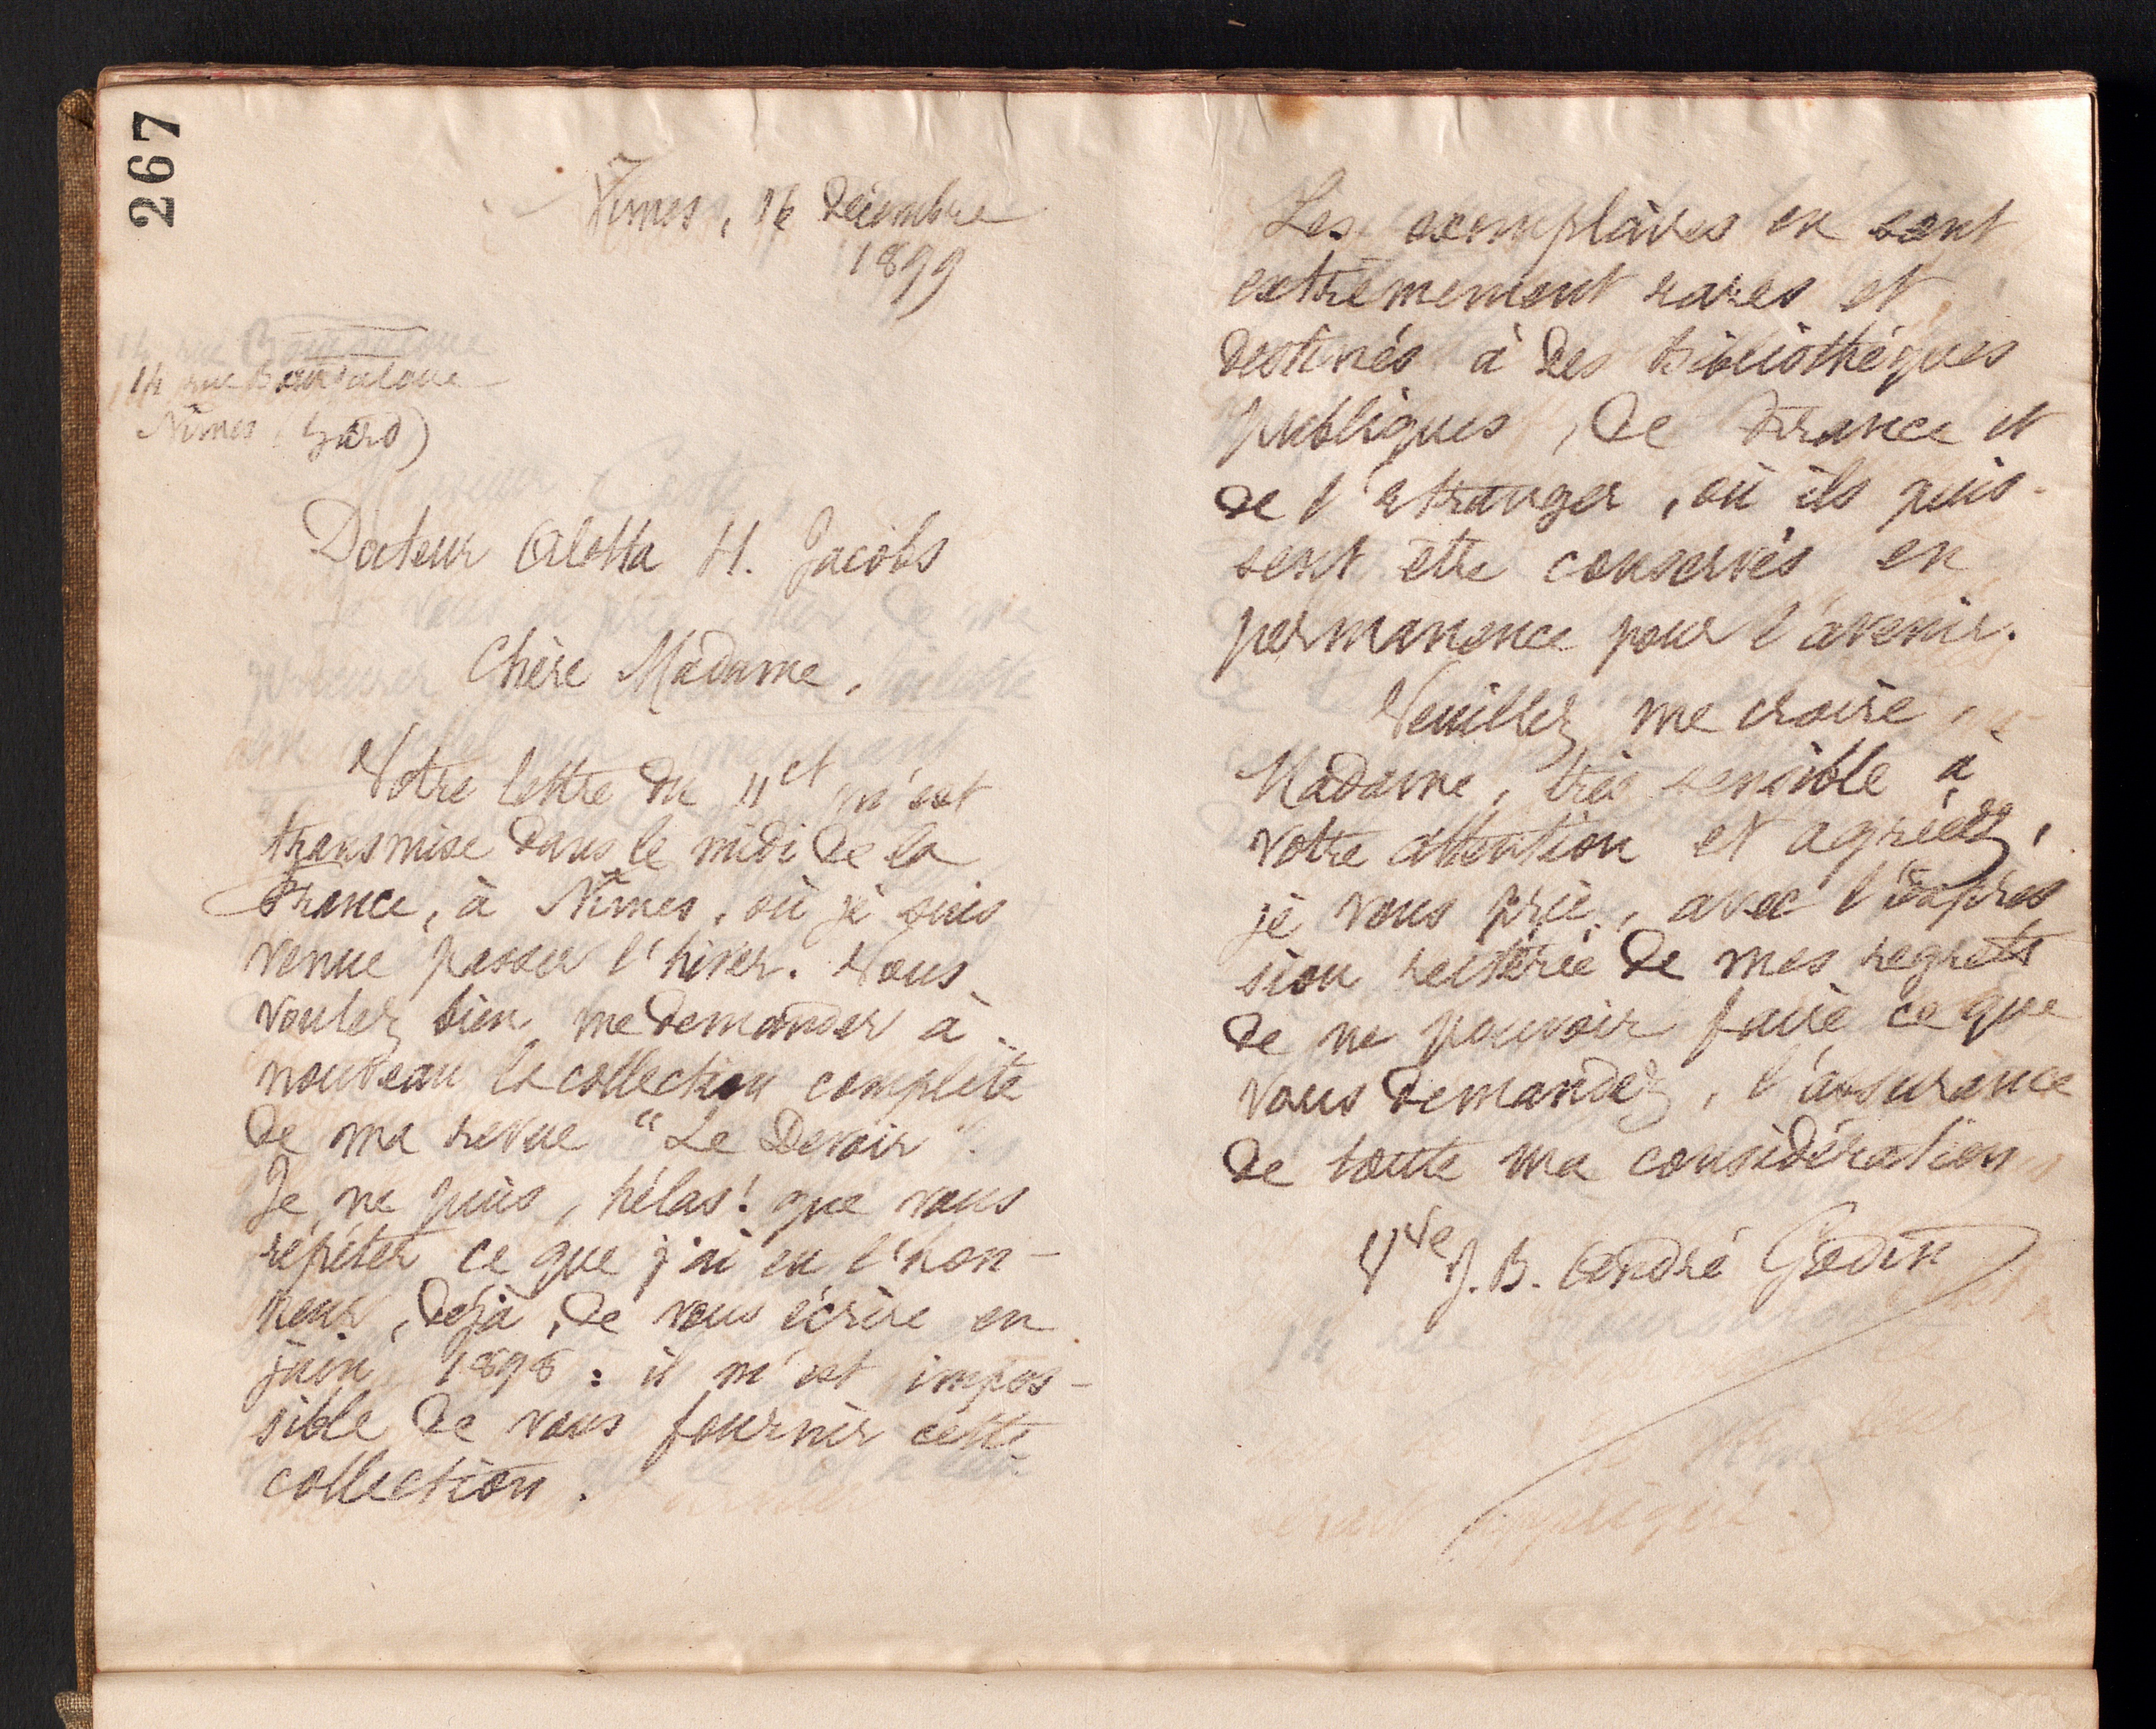 267
Nîmes, 16 Décembre
1899
14 rue Bourdaloue
Nîmes (Gard)
Docteur Aletta H. Jacobs
Chère Madame,
Votre lettre du 11 ct m'est
transmise dans le midi de la
France, à Nîmes, où je suis
venue passer l'hiver. Vous
voulez bien me demander à
nouveau la collection complète
de ma revue "Le Devoir".
Je ne puis, hélas! que vous
répéter ce que j'ai eu l'hon-
neur, déjà, de vous écrire en
juin 1898 : il m'est impos-
sible de vous fournir cette
collection.
Les exemplaires en sont
extrêmement rares et
destinés à des bibliothèques
publiques, de France et
de l'étranger, où ils puis-
sent être conservés en
permanence pour l'avenir.
Veuillez me croire,
Madame, très sensible à
votre attention et agréez,
je vous prie, avec l'expres
sion réitérée de mes regrets
de ne pouvoir faire ce que
vous demandez, l'assurance
de toute ma considération
Vve J. B. André Godin